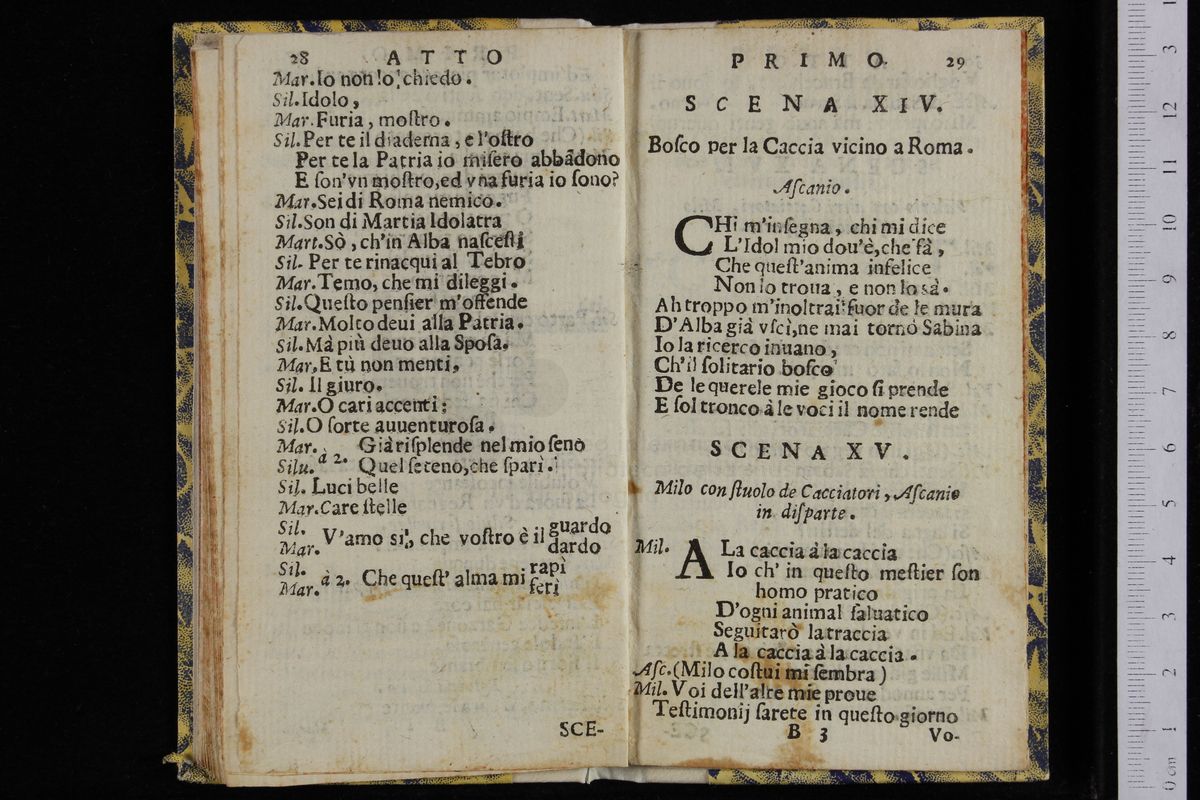 28 ATTO
Mar. Io non lo chiedo.
Sil. Idolo,
Mar. Furia, moſtro.
Sil. Per te il diadema, e l'oſtro
Per te la Patria io miſero abbãdono
E ſon'vn moſtro, ed vna furia io ſono?
Mar. Sei di Roma nemico.
Sil. Son di Martia Idolatra
Mart. Sò, ch'in Alba naſceſti
Sil. Per te rinacqui al Tebro
Mar. Temo, che mi dileggi.
Sil. Queſto penſier m'offende
Mar. Molto deui alla Patria.
Sil. Mà più deuo alla Spoſa.
Mar. E tù non menti,
Sil. Il giuro.
Mar. O cari accenti:
Sil. O ſorte auuenturoſa.
Mar. Già riſplende nel mio ſeno
Silu. à 2. Quel ſereno, che ſparì.
Sil. Luci belle
Mar. Care ſtelle
Sil. Mar. V'amo sì, che voſtro è il guardo dardo
Sil. Mar. à 2. Che queſt' alma mi rapì ferì
SCE-
PRIMO. 29
SCENA XIV.
Boſco per la Caccia vicino a Roma.
Aſcanio.
CHi m'inſegna, chi mi dice
L'Idol mio dou'è, che fà,
Che queſt'anima infelice
Non lo troua, e non lo sà.
Ah troppo m'inoltrai: fuor de le mura
D'Alba già vſcì, ne mai tornò Sabina
Io la ricerco inuano,
Ch'il ſolitario boſco
De le querele mie gioco ſi prende
E ſol tronco à le voci il nome rende
SCENA XV.
Milo con ſtuolo de Cacciatori, Aſcanio
in diſparte.
Mil. A La caccia à la caccia
Io ch' in queſto meſtier ſon
homo pratico
D'ogni animal ſaluatico
Seguitarò la traccia
A la caccia à la caccia.
Aſc. (Milo coſtui mi ſembra)
Mil. Voi dell'alte mie proue
Teſtimonij ſarete in queſto giorno
B 3 Vo-